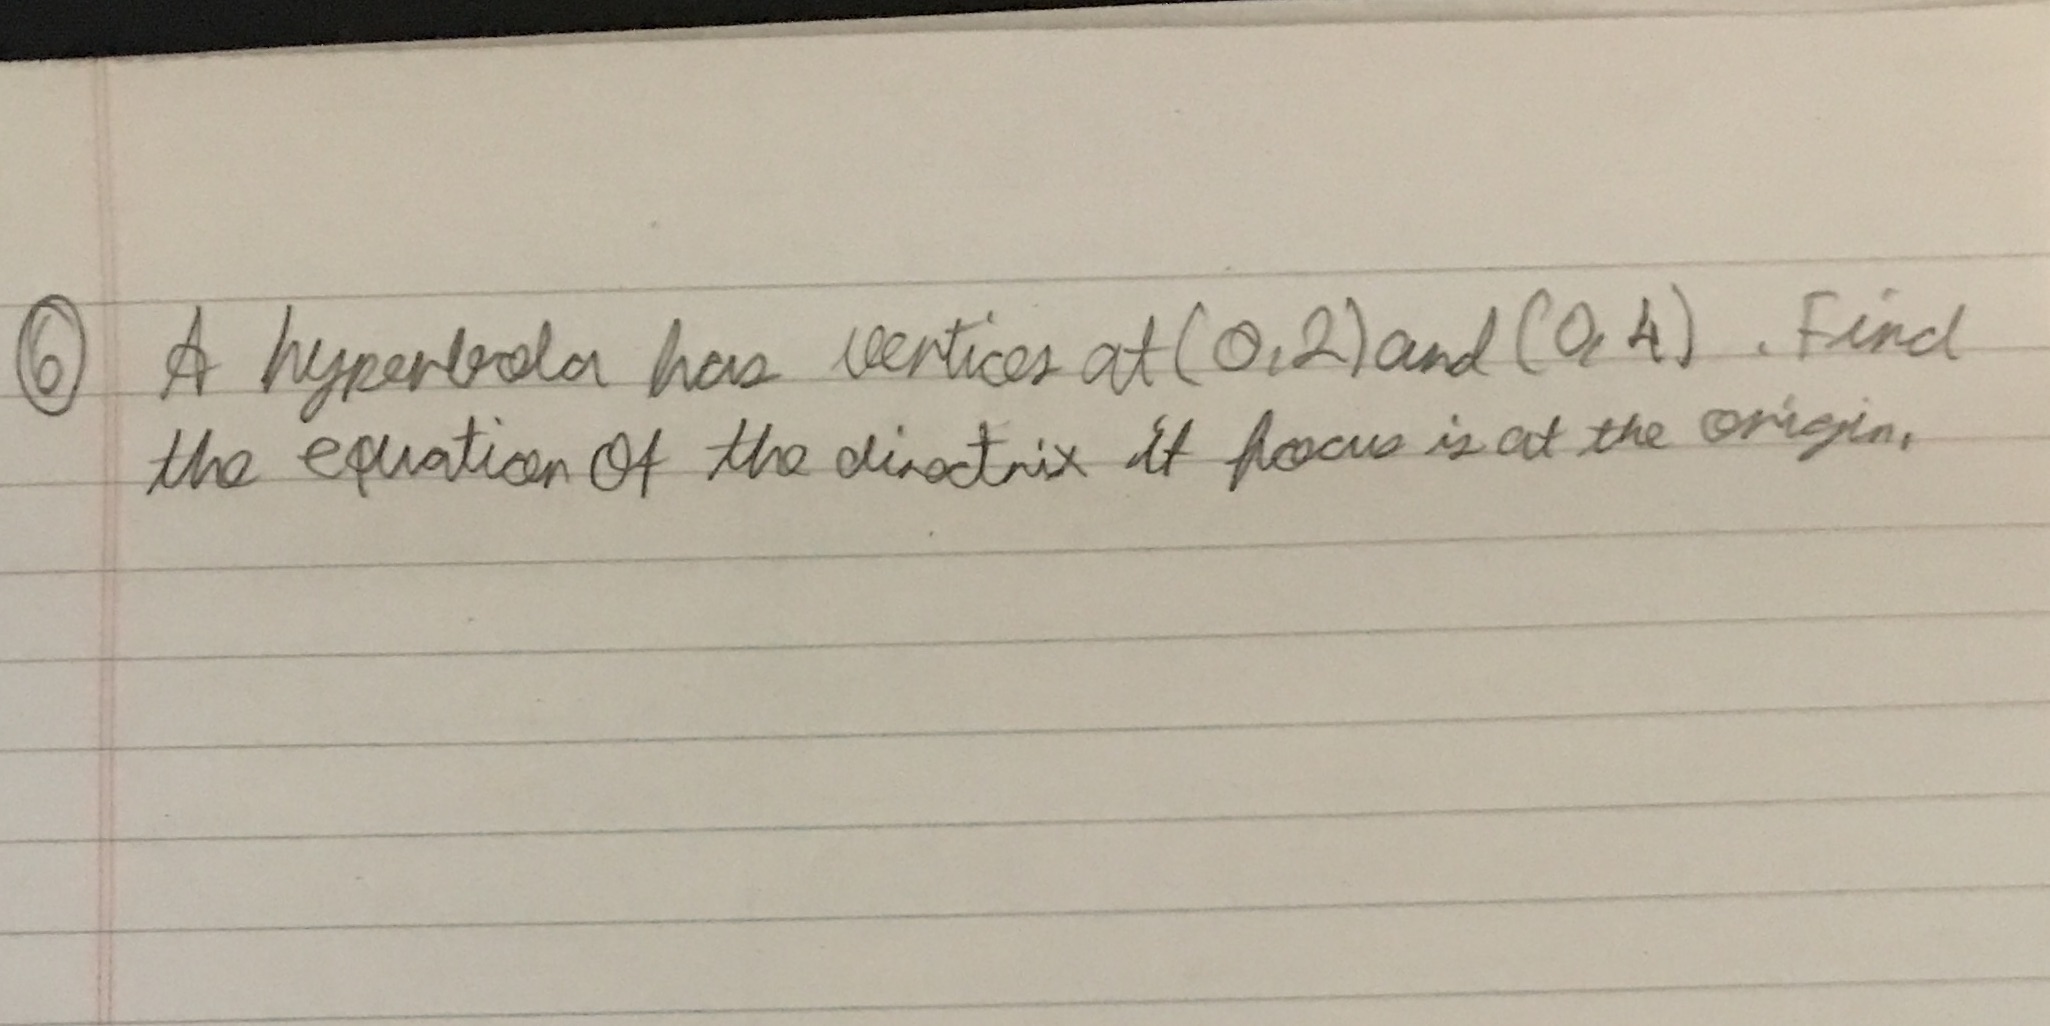 ⑥ A hyperbola has vertices at (0,2) and (0,4). Find
the equation of the directrix if focus is at the origin.